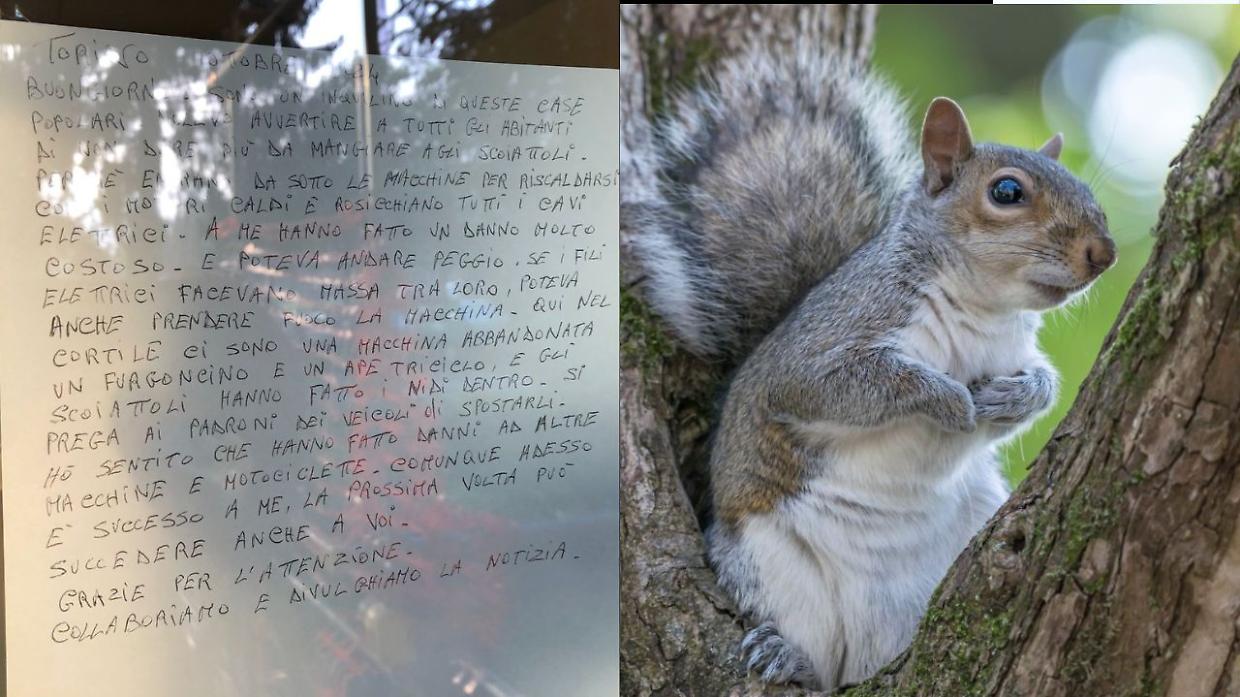 TORINO OTTOBRE
BUONGIORNO. SONO UN INQUILINO DI QUESTE CASE
POPOLARI VOLEVO AVVERTIRE A TUTTI GLI ABITANTI
DI NON DARE PIÙ DA MANGIARE AGLI SCOIATTOLI.
PERCHÈ ENTRANO DA SOTTO LE MACCHINE PER RISCALDARSI
CON I MOTORI CALDI E ROSICCHIANO TUTTI I CAVI
ELETTRICI. A ME HANNO FATTO UN DANNO MOLTO
COSTOSO. E POTEVA ANDARE PEGGIO. SE I FILI
ELETTRICI FACEVANO MASSA TRA LORO, POTEVA
ANCHE PRENDERE FUOCO LA MACCHINA. QUI NEL
CORTILE CI SONO UNA MACCHINA ABBANDONATA
UN FURGONCINO E UN APE TRICICLO, E GLI
SCOIATTOLI HANNO FATTO I NIDI DENTRO. SI
PREGA AI PADRONI DEI VEICOLI DI SPOSTARLI.
HO SENTITO CHE HANNO FATTO DANNI AD ALTRE
MACCHINE E MOTOCICLETTE. COMUNQUE ADESSO
E' SUCCESSO A ME, LA PROSSIMA VOLTA PUÒ
SUCCEDERE ANCHE A VOI.
GRAZIE PER L'ATTENZIONE.
COLLABORIAMO E DIVULGHIAMO LA NOTIZIA.